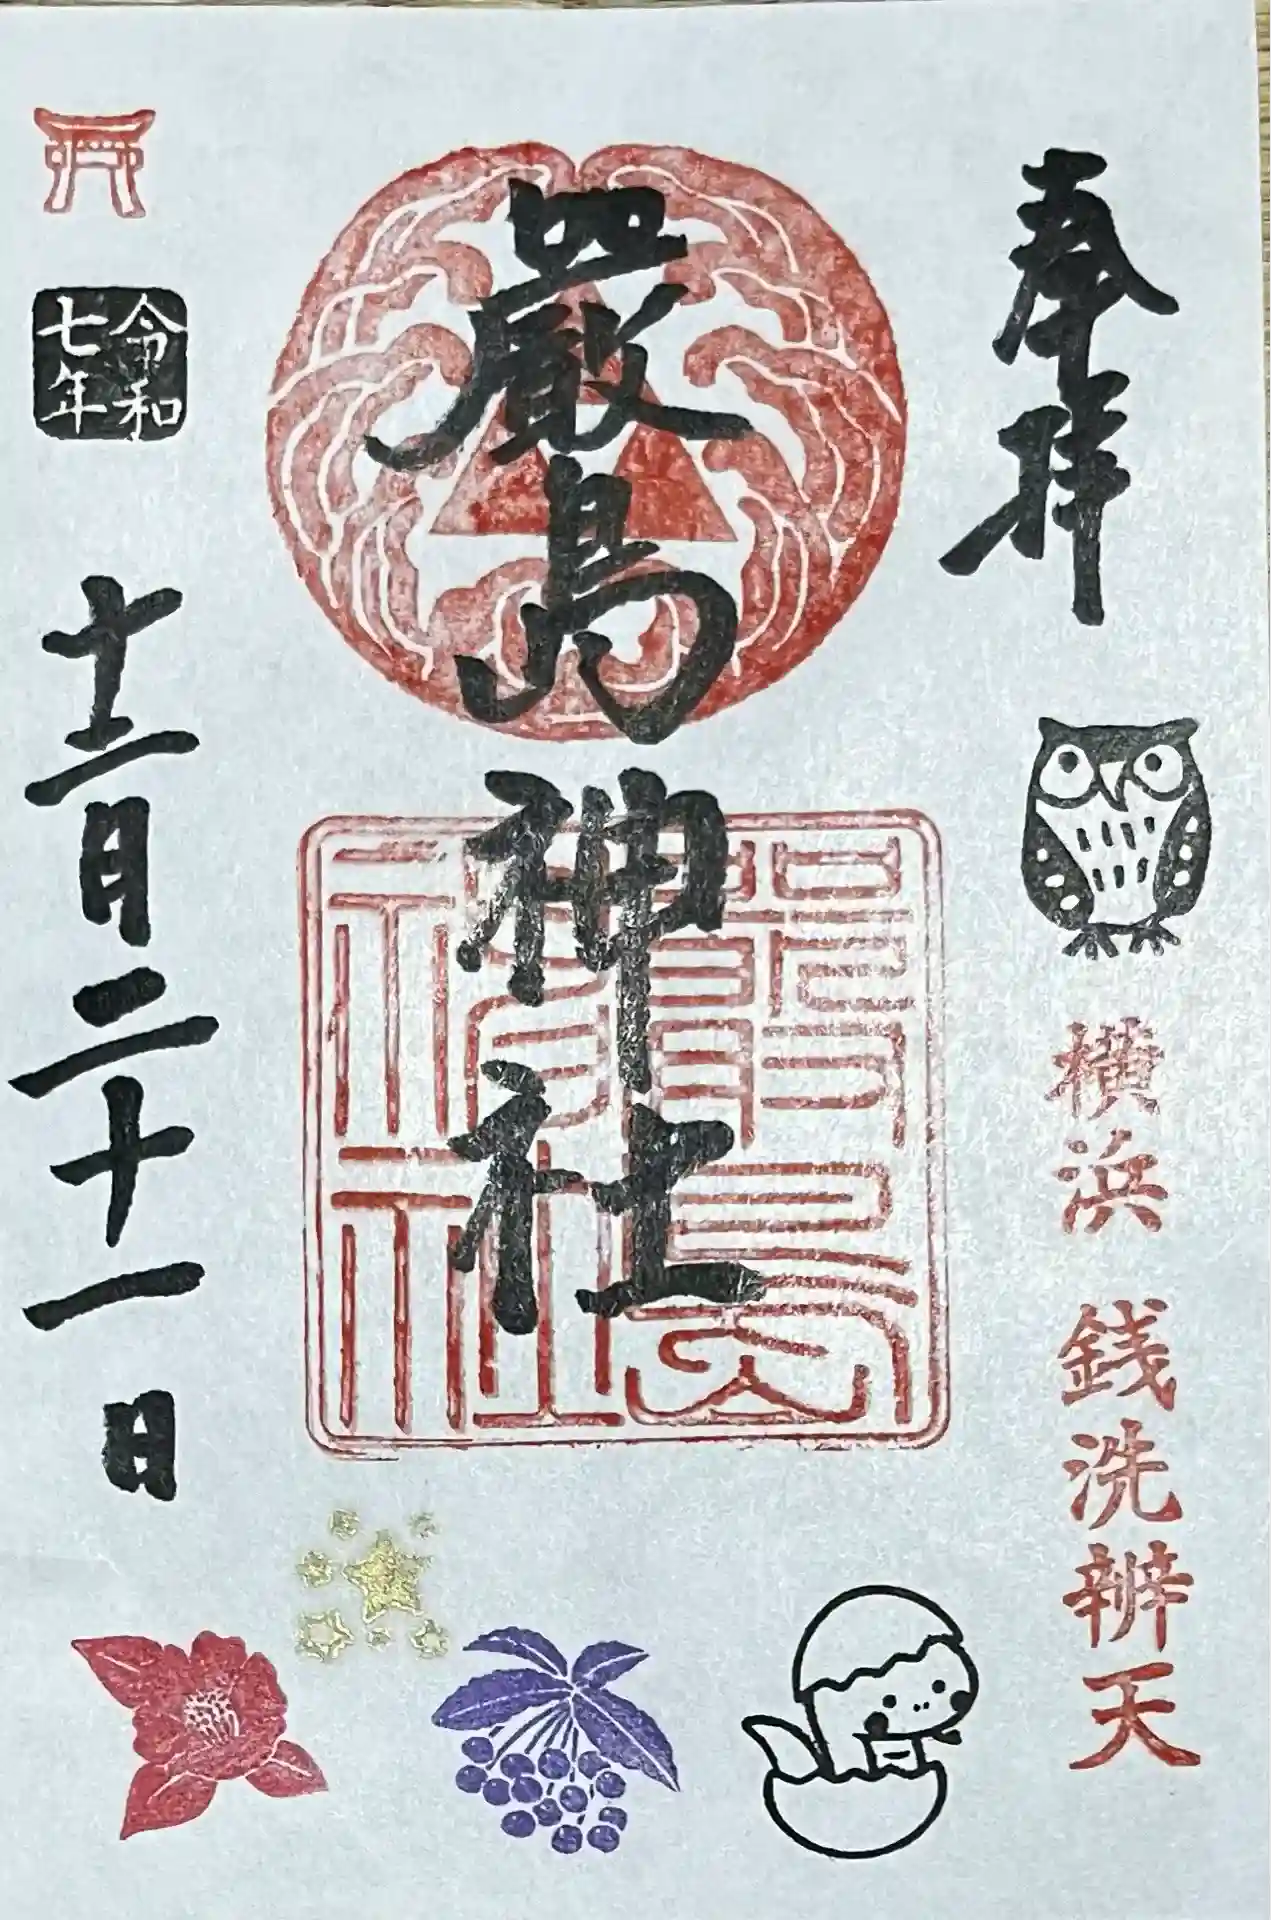 奉拝
横浜 銭洗辨天
厳島神社
厳島神社
令和七年
十二月二十一日